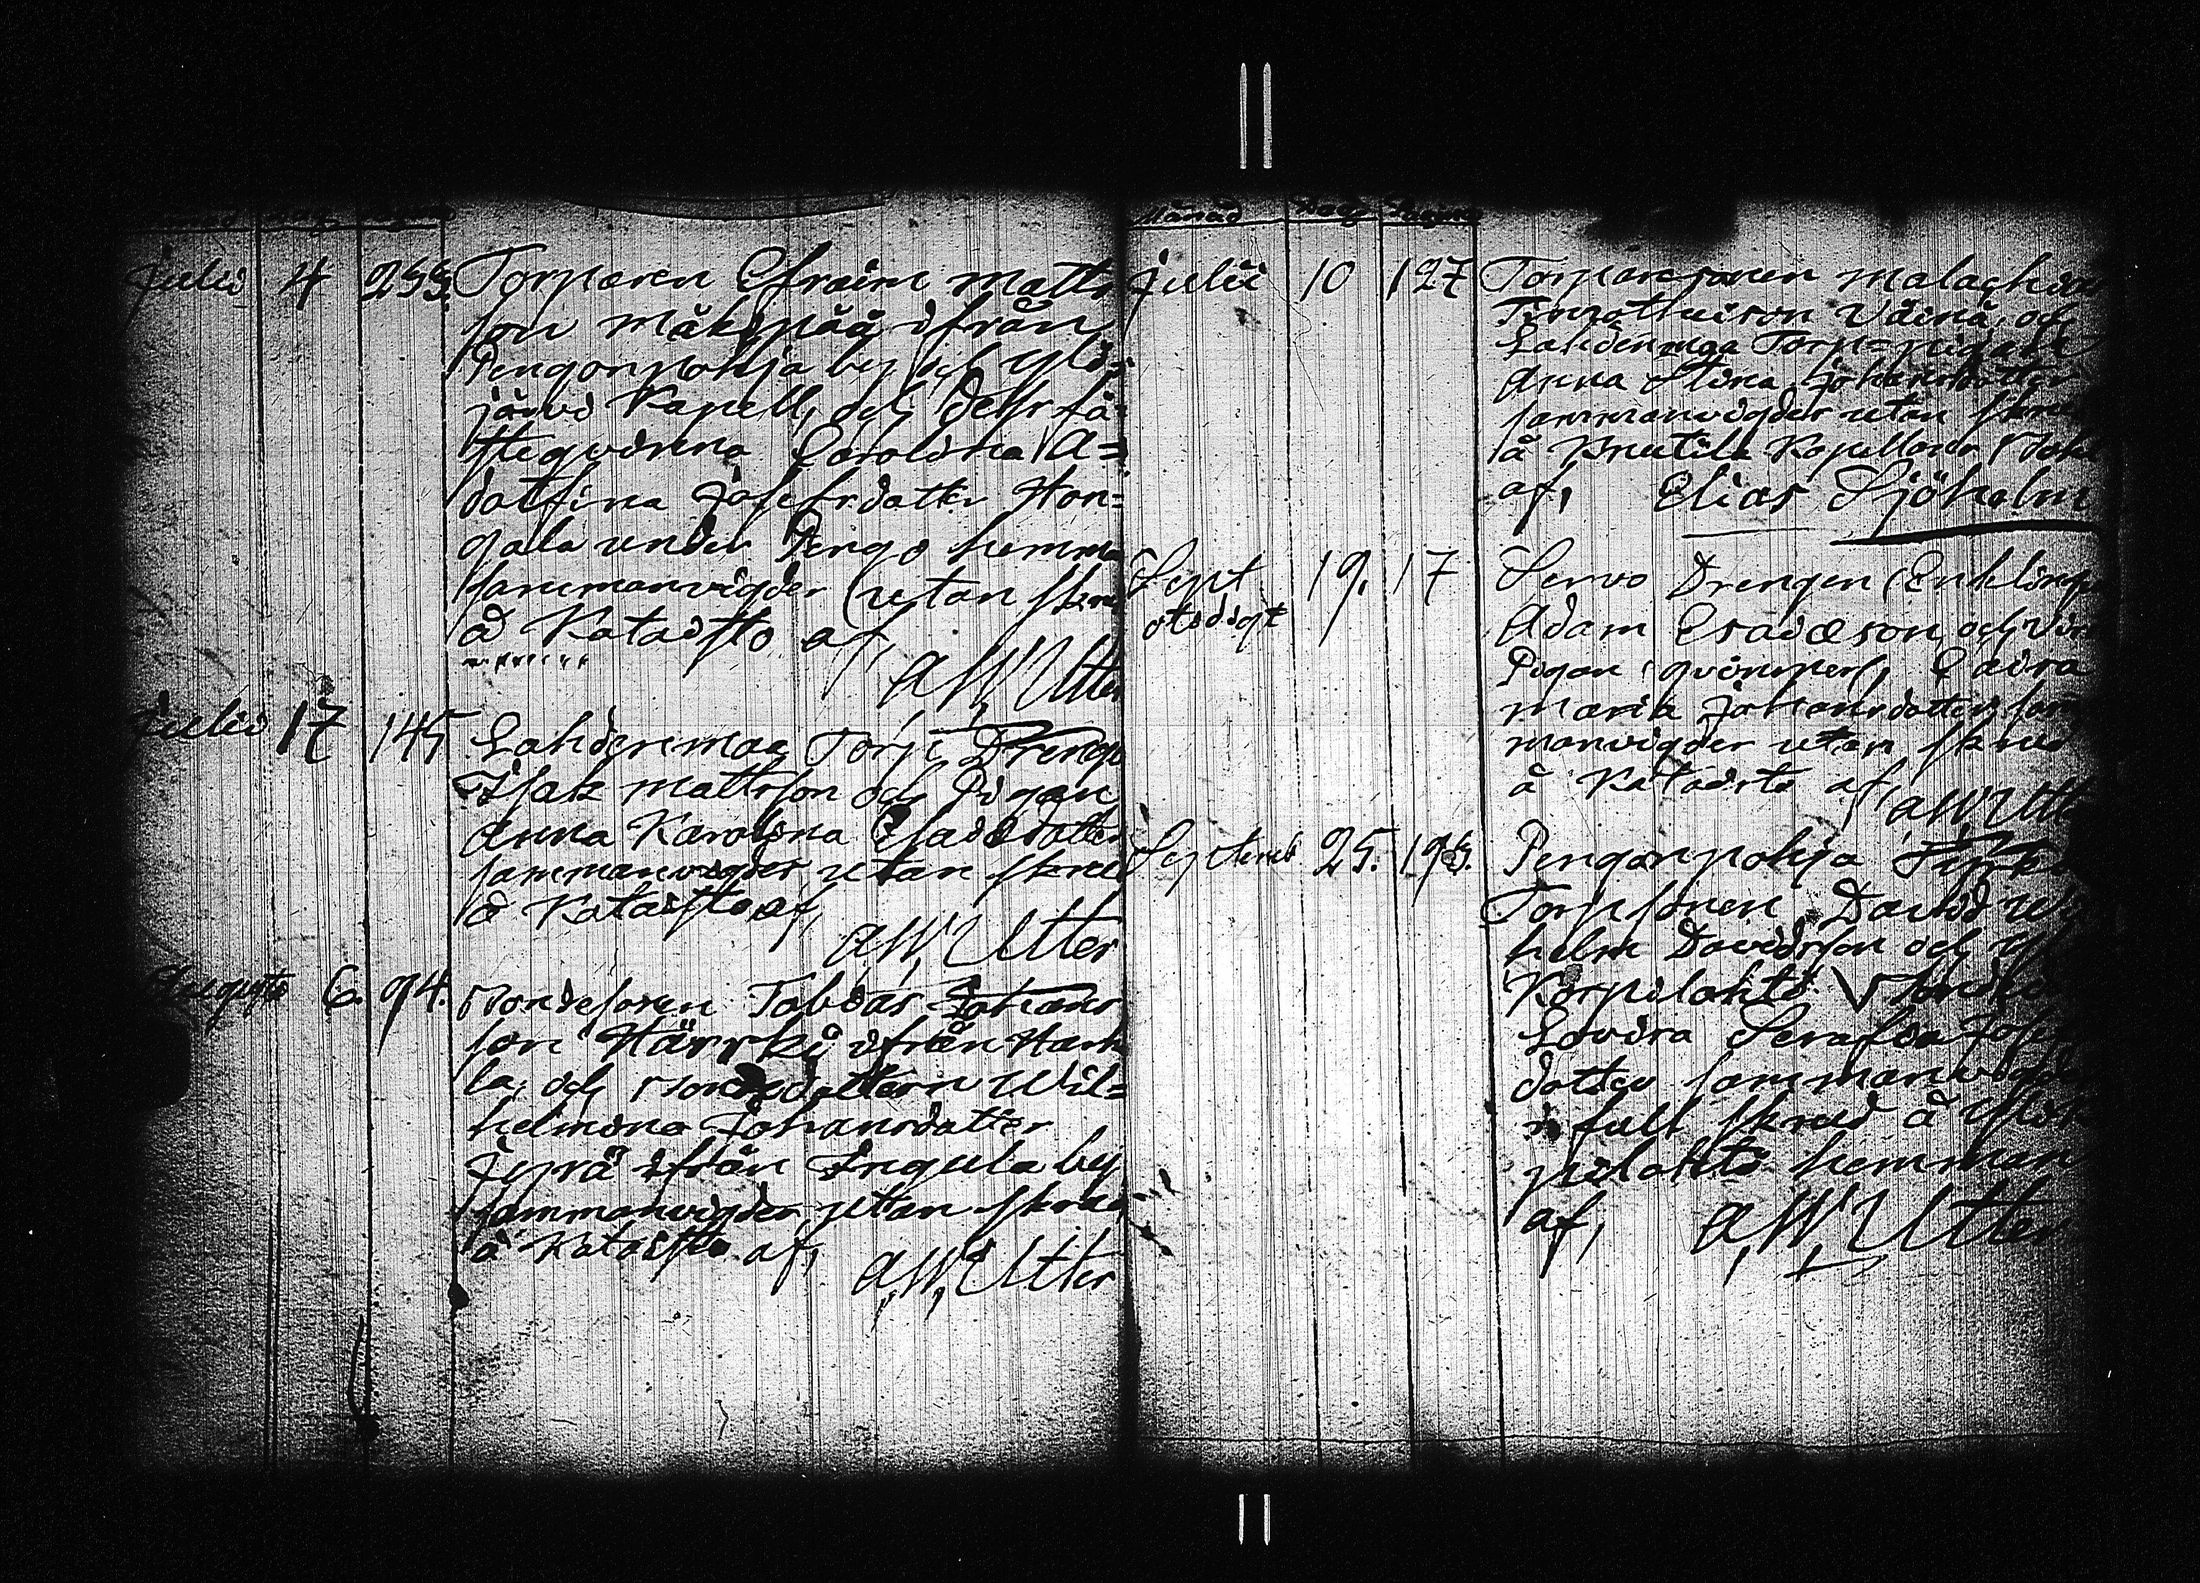 Julii 4 255. Torparen Efraim Matts
son Mäkipää ifrån
Pengonpohja by och Ylis=
järvi Kapell, och dess fä=
steqvinna Carolina A=
dolfina Josefsdotter Hon=
gala under Pengo hemma
sammanvigder (utan skru
å Kataisto af
A.W. Utter
Julii 17 145 Lahdenmaa Torp Drenge
Isak Mattsson och Pigan
Anna Karolina Esaiedotter
sammanvigder utan skrud
å Kataisto, af,
A.W. Utter
Augusti 6. 94. Bondesonen Tobias Johans
son Härrki ifrån Hark
la, och Bondedottern Wil=
helmina Johansdotter
Jyrä ifrån Ingula by
sammanvigder utan skrud
å Kataisto af,
A.W. Utter
Månad Dag Pagina
Julii 10 127 Torparesonen Malachias
Timotheison Väinä, och
Lahdenmaa Torp=pigan
Anna Stina Johansdotter
sammanvigder utan skru
å Knutila Kapellans Bohl
af, Elias Sjöholm
Sept 19. 17 Servo Drengen (Enklinge
otidigt Adam Esaiæson, och
Pigan (qvinspers), Lovisa
Maria Johansdotter, sam
manvigder utan skrud
å Kataisto af,
A.W. Utter
Septemb 25. 198. Pengonpohja
Torpsonen David Wil
helm Davidsson och Yli
Korpilahti
Lovisa Serafia Josefs
dotter sammanvigde
i full skrud å Ylikor
pilahti hemman
af, A.W. Utter